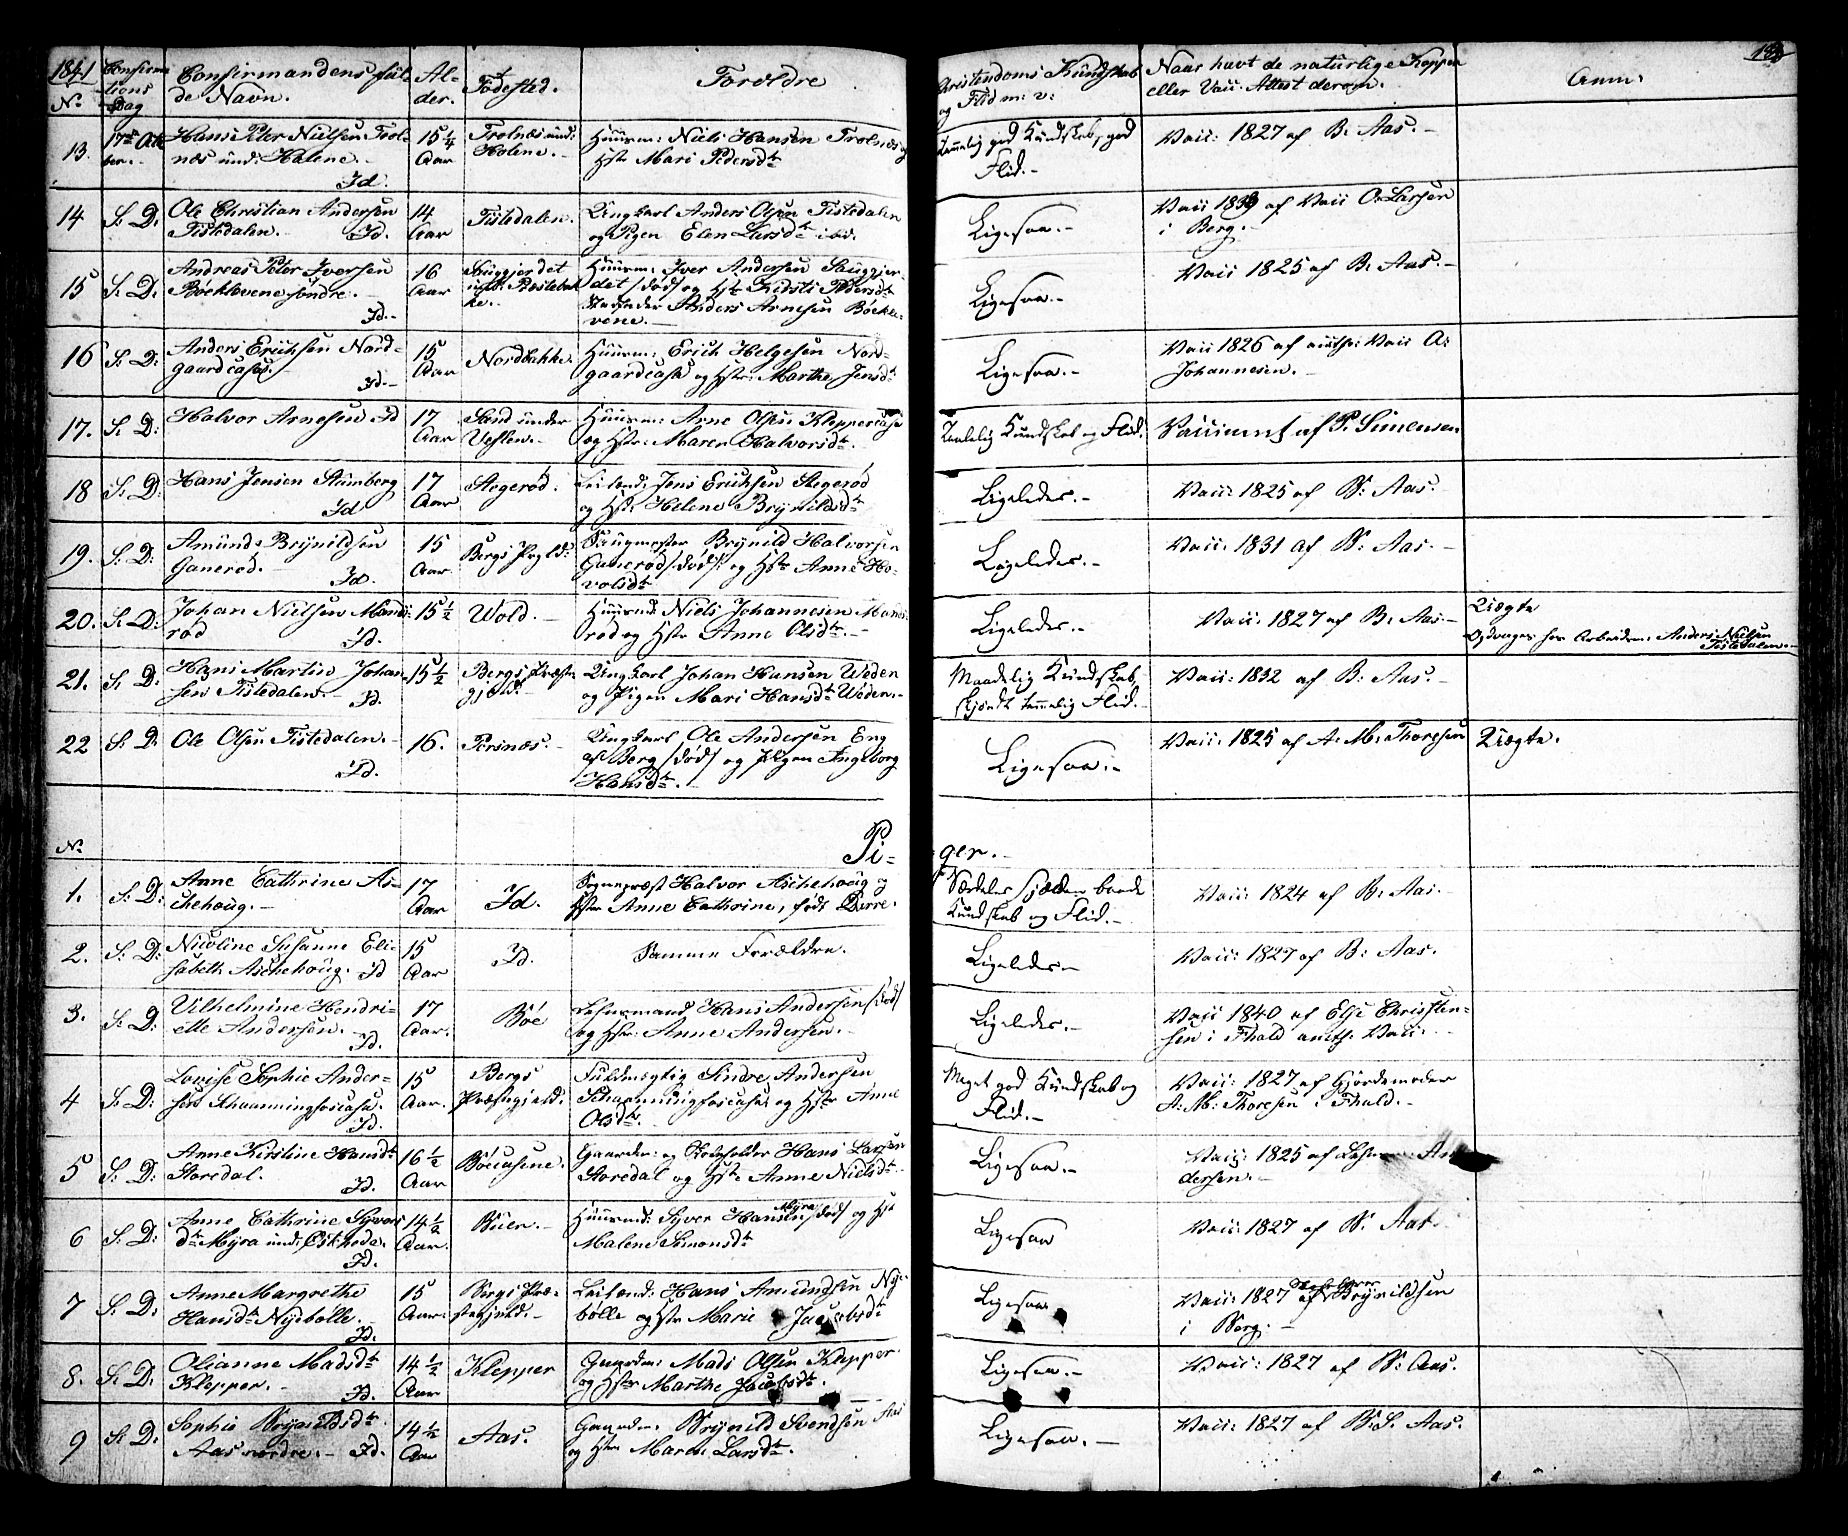 1841 Confirmations Dag Confirmandens fulde Navn. Alder. Födested. Forældre Christendoms Kundskab og Flid m: v: Naar havt de naturlige Kopper eller Vacc: Attest derom. Anm:
No
13. 17de Octber.- Hans Peter Nielsen Trolnæs und: Holene.- Id. 15 1/4 Aar Trolnæs und: Holene.- Huusm: Niels Hansen Trolnæs og Hstr Mari Pedersdtr Temmelig god Kundskab, god Flid.- Vacc: 1827 af B: Aas.-
14 S: D: Ole Christian Andersen Tistedalen.- Id. 14 Aar Tistedalen. Ungkarl Anders Olsen Tistedalen og Pigen Elen Larsdtr ibid. Ligesaa.- Vacc 1833 af Vacc O. Larsen i Berg.-
15 S: D: Andreas Peter Iversen Böeklevene söndre.- Id.- 16 Aar Huusm: Iver Andersen /död/ og Hstr Kirsti Pedersdtr Anders Arnesen Böeklevene.- Ligesaa.- Vacc 1825 af B: Aas.-
16 S: D: Anders Erichsen Nordgaardcasa.- Id.- 15 Aar Nordbakke. Huusm: Erich Helgesen Nordgaardcasa og Hstr: Marthe Jensdtr Ligesaa.- Vacc 1826 af auth: Vacc A: Johannesen.-
17. S: D: Halvor Arnesen Id 17 Aar Sand under Veslen.- Huusm: Arne Olsen Kleppercasa og Hstr: Maren Halvorsdtr. Taalelig Kundskab og Flid. Vaccineret af P. Simensen
18 S: D: Hans Jensen Id 17 Aar Stegeröd. Leilænd: Jens Erichsen Stegeröd og Hstr Helene Brynildsdtr Ligeledes.- Vacc: 1825 af B: Aas.-
19. S: D: Amund Brynildsen Ganeröd.- Id. 15 Aar. Bergs Prgld: Saugmester Brynild Halvorsen Ganeröd /död/ og Hstr Anne Ligeledes.- Vacc: 1831 af B: Aas.-
20. S: D: Johan Nielsen Id. 15 1/2 Wold.- Huusmd: Niels Johannesen og Hstr Anne Olsdtr.- Ligeledes.- Vacc: 1827 af B: Aas.- Uægte Opdrages hos Arbeidsm: Anders Nielsen Tistedalen.-
21. S: D: Hans Martin Johansen Tistedalen.- Id. 15 1/2 Bergs Præstegjeld. Ungkarl Johan Hansen Weden og Pigen Mari Hansdtr Weden.- Maadelig Kundskab, skjöndt temmelig Flid.- Vacc: 1832 af B: Aas.-
22 S: D: Ole Olsen Tistedalen.- Id. 16. Torsnæs. Ungkarl Ole Andersen Eng af Berg /död/ og Pigen Ingeborg Hansdtr.- Ligesaa.- Vacc: 1825 af A: M: Thoresen Uægte.
No Pi- ger.-
1. S: D: Anne Cathrine Aschehoug.- 17 Aar Id. Sognepræst Halvor Aschehoug og Hstr Anne Cathrine, födt Darre. Særdeles sjelden baade Kundskab og Flid.- Vacc: 1824 af B: Aas.-
2. S: D: Nicoline Susanne Elisabeth Aschehoug. Id 15 Aar Id. Samme Forældre. Ligeledes- Vacc: 1827 af B: Aas.
3. S: D: Vilhelmine Hendriette Andersen.- Id. 17 Aar. Böe Lehnsmand Hans Andersen /död/ og Hstr: Anne Andersen.- Ligeledes.- Vacc 1840 af Else Christensen i Fhald auth: Vacc:-
4 S: D: Lovise Sophie Andersen Schanningfoscasa. Id. 15 Aar. Bergs Præstegjeld. Fuldmægtig Sindre Andersen Schanningfoscasa og Hstr Anne Olsdtr.- Meget god Kundskab og Flid.- Vacc: 1827 af Gjordemoder A: M: Thoresen i Fhald.-
5 S: D: Anne Kirstine Hansdtr Storedal. Id. 16 1/2 Aar Böecasene. Gaardm: og Hans Larsen Storedal og Hstr Anne Nielsdtr.- Ligesaa.- Vacc: 1825 af Andersen.-
6 S: D: Anne Cathrine Syversdtr Myra und: Id. 14 1/2 Aar. Buer.- Huusmd: Syver Hansen Myra /död/ og Hstr Malene Simonsdtr Ligesaa Vacc: 1827 af B: Aas.
7 S: D: Anne Margrethe Hansdtr Nyebölle. Id. 15 Aar. Bergs Præstegjeld. Leilænd: Hans Amundsen Nyebölle og Hstr Marie Jacobsdtr Ligesaa Vacc: 1827 af Brynildsen i Berg.-
8. S: D: Olianne Madsdtr Klepper.- Id. 14 1/2 Aar Klepper Gaardm: Mads Olsen Klepper. og Hstr Marthe Jacobsdtr. Ligesaa.- Vacc: 1827 af B: Aas.
9 S: D: Sophie Brynildsdtr Aas nordre.- Id. 14 1/2 Aar Aas. Gaardm: Brynild Svendsen Aas og Hstr Maren Larsdtr. Ligesaa.- Vacc: 1827 af B. S. Aas.